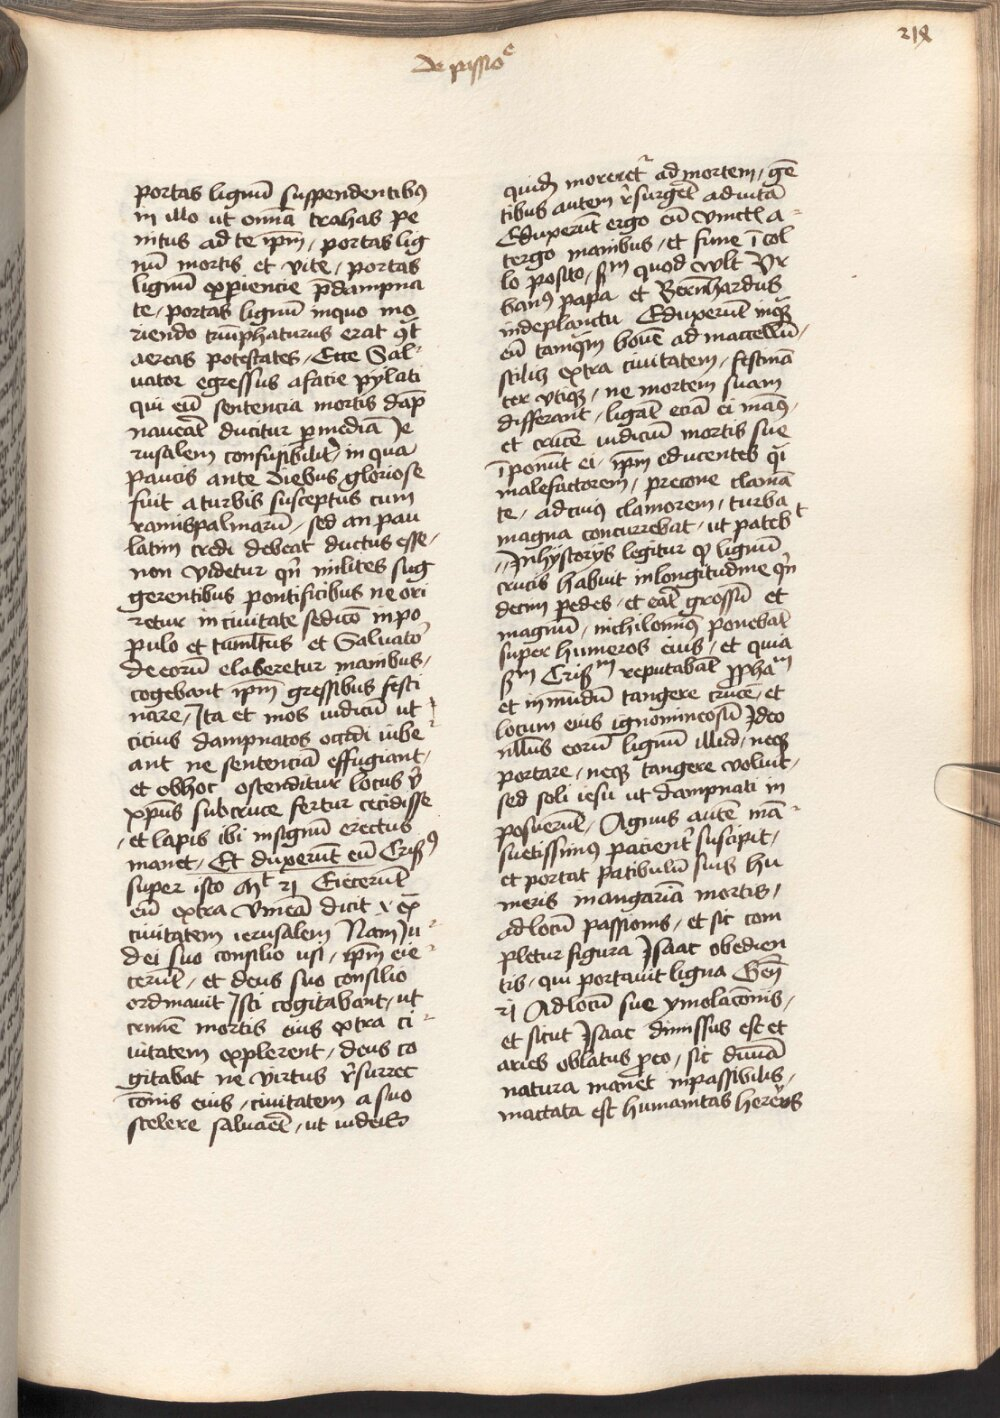 De passioe
218
portas lignū suspendentibus
in illo ut omīa trahas pe
nitus ad te ip̄m / portas lig
nū mortis et vite / portas
lignū expiencie p̄dampna
te / portas lignū in quo mo
riendo triūphaturus erat
aereas potestates / Ecce Sal
uator egressus a facie pylati
qui eū sentencia mortis dāp
naueāt ducitur p mediā Je
rusalem confusibilit̄ in qua
paucis ante diebus gloriose
fuit a turbis susceptus cum
ramis palmarū / sed an pau
latim credi debeat ductus esse /
non videtur qn̄ milites sug
gerentibus pontificibus ne ori
retur in ciuitate sedicō in po
pulo et tumltus et Saluato
de eorū elaberetur manibus /
cogebant ip̄m gressibus festi
nare / Ita et mos iudicū ut
cicius dampnatos occidi iube
ant ne sentenciā effugiant /
et ob hoc ostenditur locus v̄
xp̄us sub cruce fertur cecidisse
/ et lapis ibi in signū erectus
manet / Et duxerūt eū Criſ9
super isto Mt 21 Eiecerūt
eū extra vineā dicit
ciuitatem ierusalem Nam Ju
dei suo consilio usi / ip̄m eie
cerūt / et deus suo consilio
ordinauit Isti cogitabant / ut
crimē mortis eius extra ci
uitatem explerent / deus co
gitabat ne virtus r̄surrec
cōnis eius / ciuitatem a suo
scelere saluaēt / ut iudeis
quidē morerēt ad mortem / gē
tibus autem r̄surgēt ad uitā
Eduxerūt ergo eū vinctū a
tergo manibus / et fune ī col
lo posito / sm quod vult Vr
ban9 papa et Bernhardus
in deplanctu Eduxerūt inqͣ
eū tamqm bouē ad maccellū /
scilicz extra ciuitatem / festinā
ter vtiqꝫ / ne mortem suam
differant / ligāt eciā ei man9 /
et crucē iudiciū mortis sue
īponūt ei / ip̄m educentes qͣi
malefactorem / precone clamā
te / ad cuius clamorem / turba
magna concurrebat / ut patebt
// In hystorijs legitur qͥ lignū
crucis habuit in longitudine qn
decim pedes / et erāt grossū et
magnū / nichilomin9 ponebāt
super humeros eius / et quia
sm Crism reputabāt ꝓphām
et inmūdū tangere crucē / et
locum eius ignominiosū Ideo
nullus eorū lignū illud / neqꝫ
portare / neqꝫ tangere voluit /
sed soli iesu ut dampnati im
posuerūt / Agnus autē mā
suetissim9 pacient̄ suscipit /
et portat patibulū suis hu
meris in angariā mortis /
ad locū passionis / et sic com
pletur figura Isaac obedien
tis / qui portauit ligna Geñ
21 Ad locū sue ymolacōnis /
et sicut Isaac dimissus est et
aries oblatus p eo / sic diuiā
natura manet inpassibilis /
mactata est humanitas herens